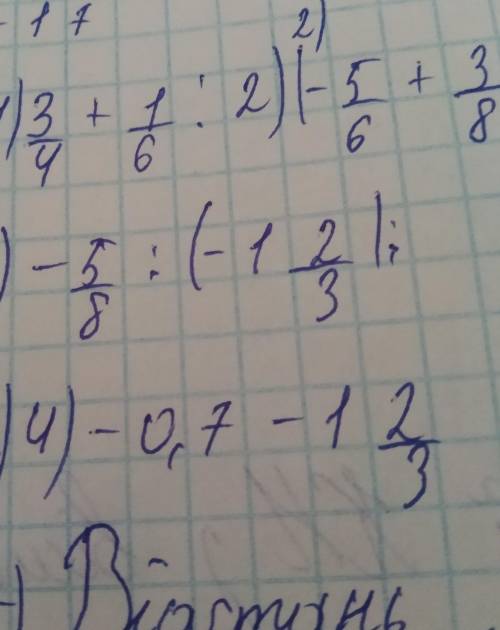 - 1 7
1) 3/4 + 1/6 : 2) - 5/6 + 3/8
) - 5/8 : (- 1 2/3);
) 4) - 0,7 - 1 2/3
-) Відстань